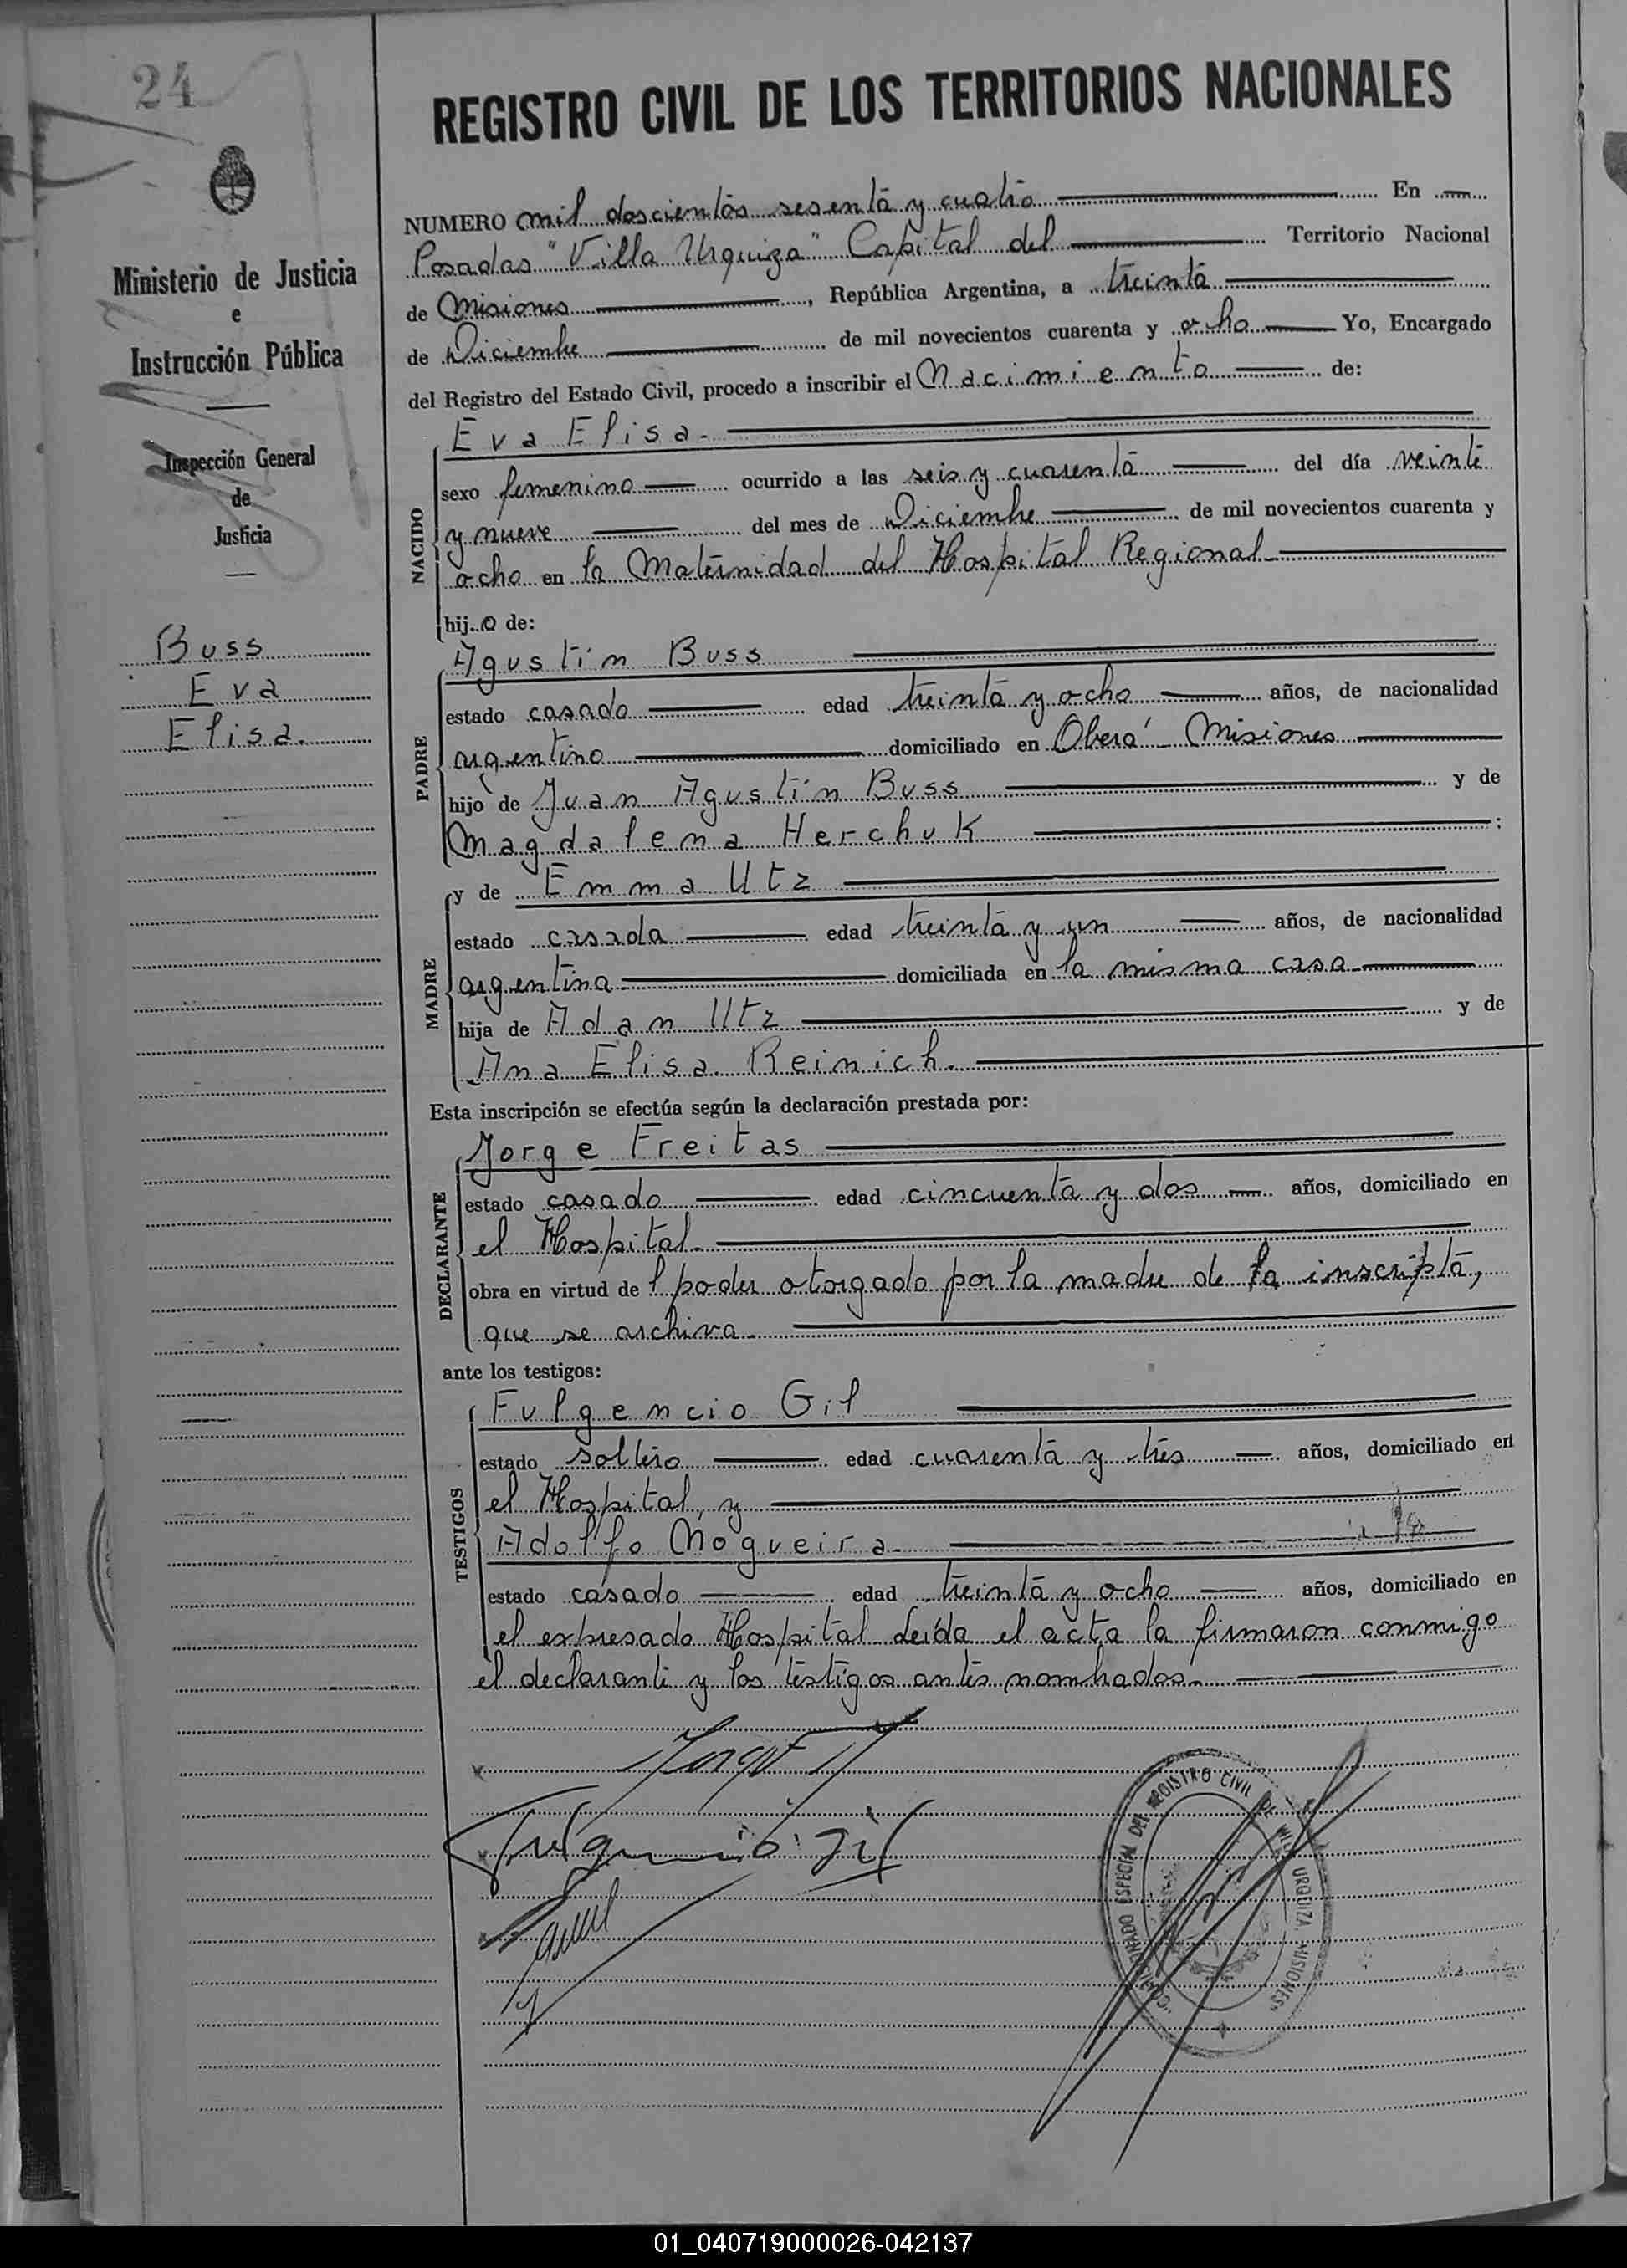 24
REGISTRO CIVIL DE LOS TERRITORIOS NACIONALES
Ministerio de Justicia
e
Instrucción Pública
Inspección General
de
Justicia
Buss
Eva
Elisa.
NUMERO mil doscientos sesenta y cuatro En
Posadas "Villa Urquiza" Capital del Territorio Nacional
de Misiones, República Argentina, a treinta
de Diciembre de mil novecientos cuarenta y ocho Yo, Encargado
del Registro del Estado Civil, procedo a inscribir el Nacimiento de:
NACIDO
Eva Elisa.
sexo femenino ocurrido a las seis y cuarenta del día veinte
y nueve del mes de Diciembre de mil novecientos cuarenta y
ocho en la Maternidad del Hospital Regional
hij.a de:
PADRE
Agustin Buss
estado casado edad treinta y ocho años, de nacionalidad
argentino domiciliado en Oberá - Misiones
hijo de Juan Agustin Buss y de
Magdalena Herchuk :
MADRE
y de Emma Utz
estado casada edad treinta y un años, de nacionalidad
argentina domiciliada en la misma casa
hija de Adan Utz y de
Ana Elisa Reinich.
Esta inscripción se efectúa según la declaración prestada por:
DECLARANTE
Jorge Freitas
estado casado edad cincuenta y dos años, domiciliado en
el Hospital.
obra en virtud de l poder otorgado por la madre de la inscripta,
que se archiva.
ante los testigos:
TESTIGOS
Fulgencio Gil
estado soltero edad cuarenta y tres años, domiciliado en
el Hospital, y
Adolfo Nogueira.
estado casado edad treinta y ocho años, domiciliado en
el expresado Hospital. Leída el acta la firmaron conmigo
el declarante y los testigos antes nombrados.
Fulgencio Gil
COMISIONADO ESPECIAL DEL REGISTRO CIVIL DE VILLA URQUIZA MISIONES
01_040719000026-042137